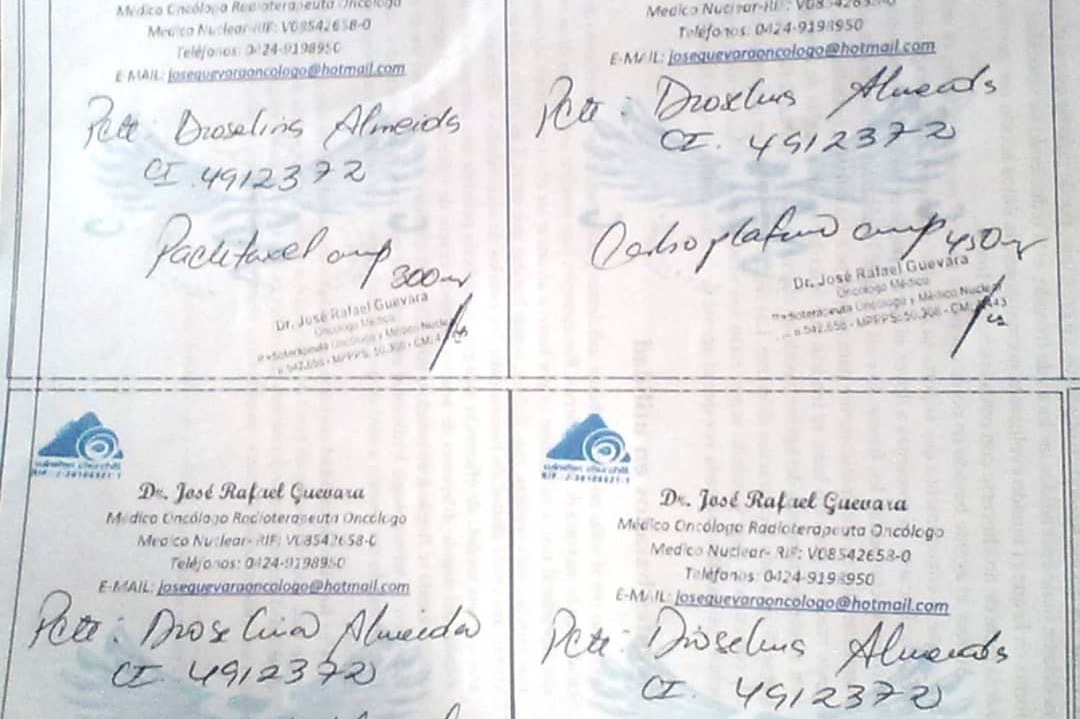 Medico Oncólogo Radioterapeuta Oncólogo
Medico Nuclear-RIF: V08542658-0
Teléfonos: 0424-9198950
E-MAIL: josequevaraoncologo@hotmail.com
Pcte: Dioselina Almeida
CI. 4912372
Paclitaxel amp
300mg
Dr. José Rafael Guevara
Oncólogo Médico
Radioterapeuta Oncólogo y Médico Nuclear
MPPPS: 50.308 - CM:
Medico Nuclear-RIF:
Teléfonos: 0424-9198950
E-MAIL: josequevaraoncologo@hotmail.com
Pcte: Dioselina Almeida
CI. 4912372
Carboplatino amp 450mg
Dr. José Rafael Guevara
Oncólogo Médico
Radioterapeuta Oncólogo y Médico Nuclear
MPPPS: 50.308 - CM:
winston churchill
Dr. José Rafael Guevara
Médico Oncólogo Radioterapeuta Oncólogo
Medico Nuclear- RIF: V08542658-0
Teléfonos: 0424-9198950
E-MAIL: josequevaraoncologo@hotmail.com
Pcte: Dioselina Almeida
CI. 4912372
winston churchill
Dr. José Rafael Guevara
Médico Oncólogo Radioterapeuta Oncólogo
Medico Nuclear- RIF: V08542658-0
Teléfonos: 0424-9198950
E-MAIL: josequevaraoncologo@hotmail.com
Pcte: Dioselina Almeida
CI. 4912372